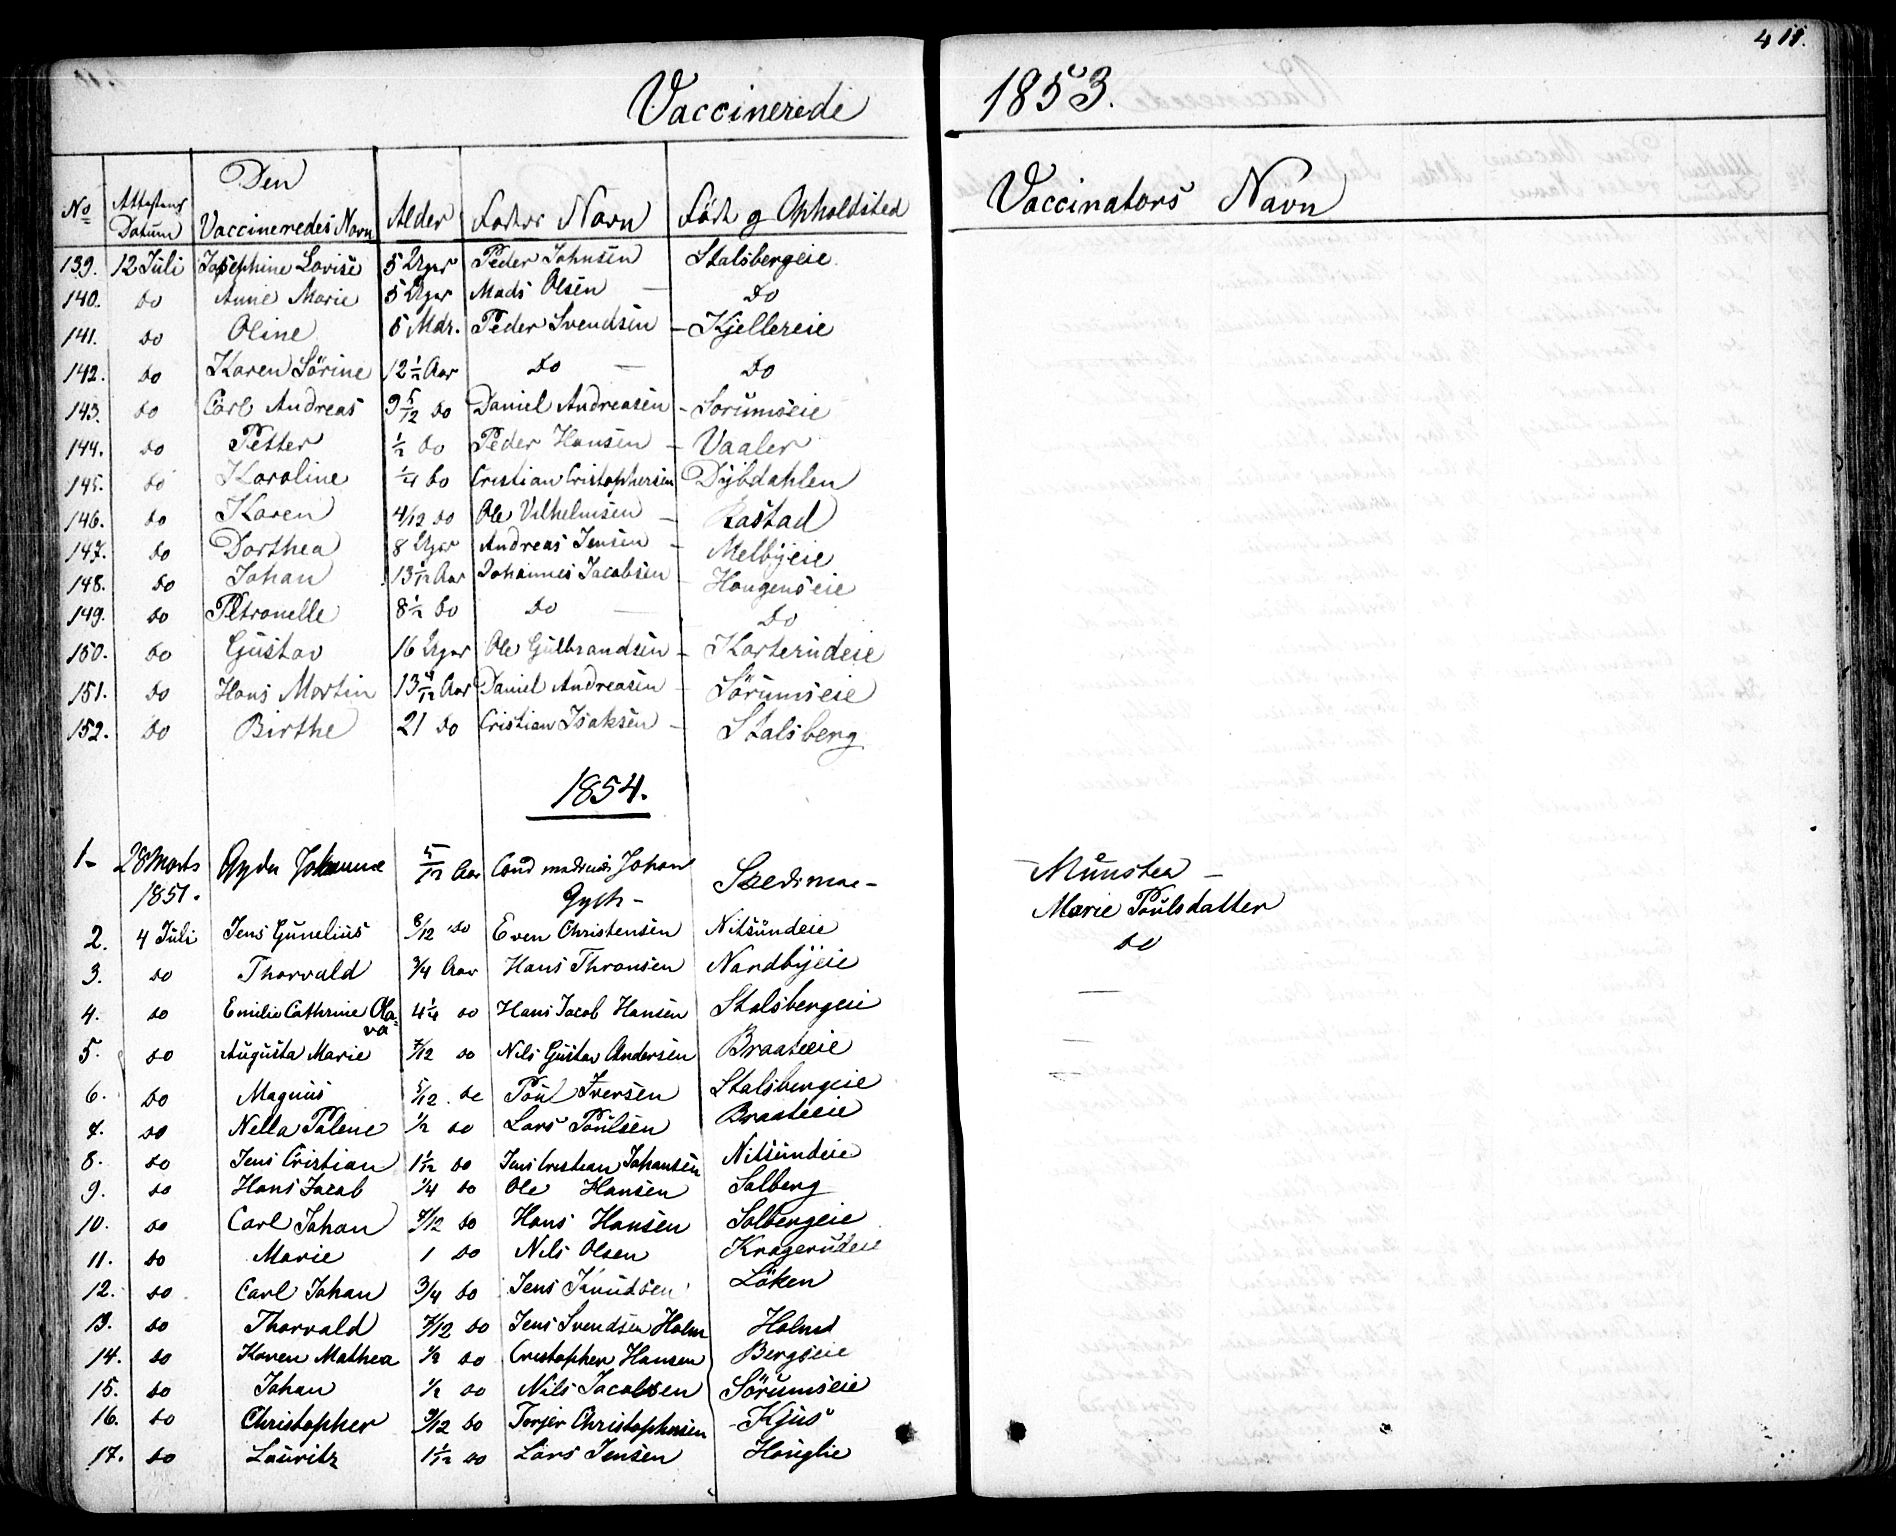 411.
Vaccinerede 1853.
No Attestens Datum Den Vaccineredes Navn Alder Faders Navn Föde g Opholdsted Vaccinators Navn
139. 12 Juli Josephine Lovise 5 Uger Peder Johnsen Stalsbergeie
140. do Anne Marie 5 Uger Mads Olsen — do
141. do Oline 5 Mdr. Peder Svendsen – Kjellereie
142. do Karen Sörine 12 1/2 Aar do — do
143. do Carl Andreas 9 5/12 do Daniel Andreasen – Sorumseie
144. do Petter 1/2 do Peder Hansen – Vaaler
145. do Karoline 1/4 do Cristian Cristophersen Dybdahlen
146. do Karen 4/12 do Ole Vilhelmsen – Rastad
147. do Dorthea 8 Uger Andreas Jensen – Melbyeie
148. do Johan 13 1/12 Aar Johannes Jacobsen – Haugenseie
149. do Petronelle 8 1/2 do do — do
150. do Gustav 16 Uger Ole Gulbrandsen – Karterudeie
151. do Hans Martin 13 /12 Aar Daniel Andreasen – Sörumseie
152. do Birthe 21 do Cristian Isaksen – Stalsberg
1854.
1– 28 Marts Gyda Johanne 5/12 Aar Cand Johan — Münster –
1851. – Marie Poulsdatter
2. 4 Juli Jens Gunelius 8/12 do Even Christensen Nitsundeie do
3. do Thorvald 3/4 Aar Hans Thronsen Nordbyeie
4. do Emilie Cathrine Ola- 4 1/4 do Hans Jacob Hansen Stalsbergeie —
va
5. do Augusta Marie 7/12 do Nils Gustav Andersen Braateeie —
6. do Magnus 5/12 do Poul Iversen Stalsbergeie —
7. do Nella Paline 1/2 do Lars Poulsen Braateeie
8. do Jens Cristian 1 1/12 do Jens Cristian Johansen Nitsundeie
9. do Hans Jacob 1/4 do Ole Hansen Solberg
10. do Carl Johan 7/12 do Hans Hansen Solbergeie
11. do Marie 1 do Nils Olsen Kragerudeie
12. do Carl Johan 3/4 do Jens Knudsen Löken
13. do Thorvald 7/12 do Jens Svendsen Holm Holmd
14. do Karen Mathea 1/2 do Cristopher Hansen Bergseie
15. do Johan 1/2 do Nils Jacobsen Sörumseie
16. do Christopher 9/12 do Torjer Christophersen Kjus
17. do Lauritz 1 1/12 do Lars Jensen Houglie